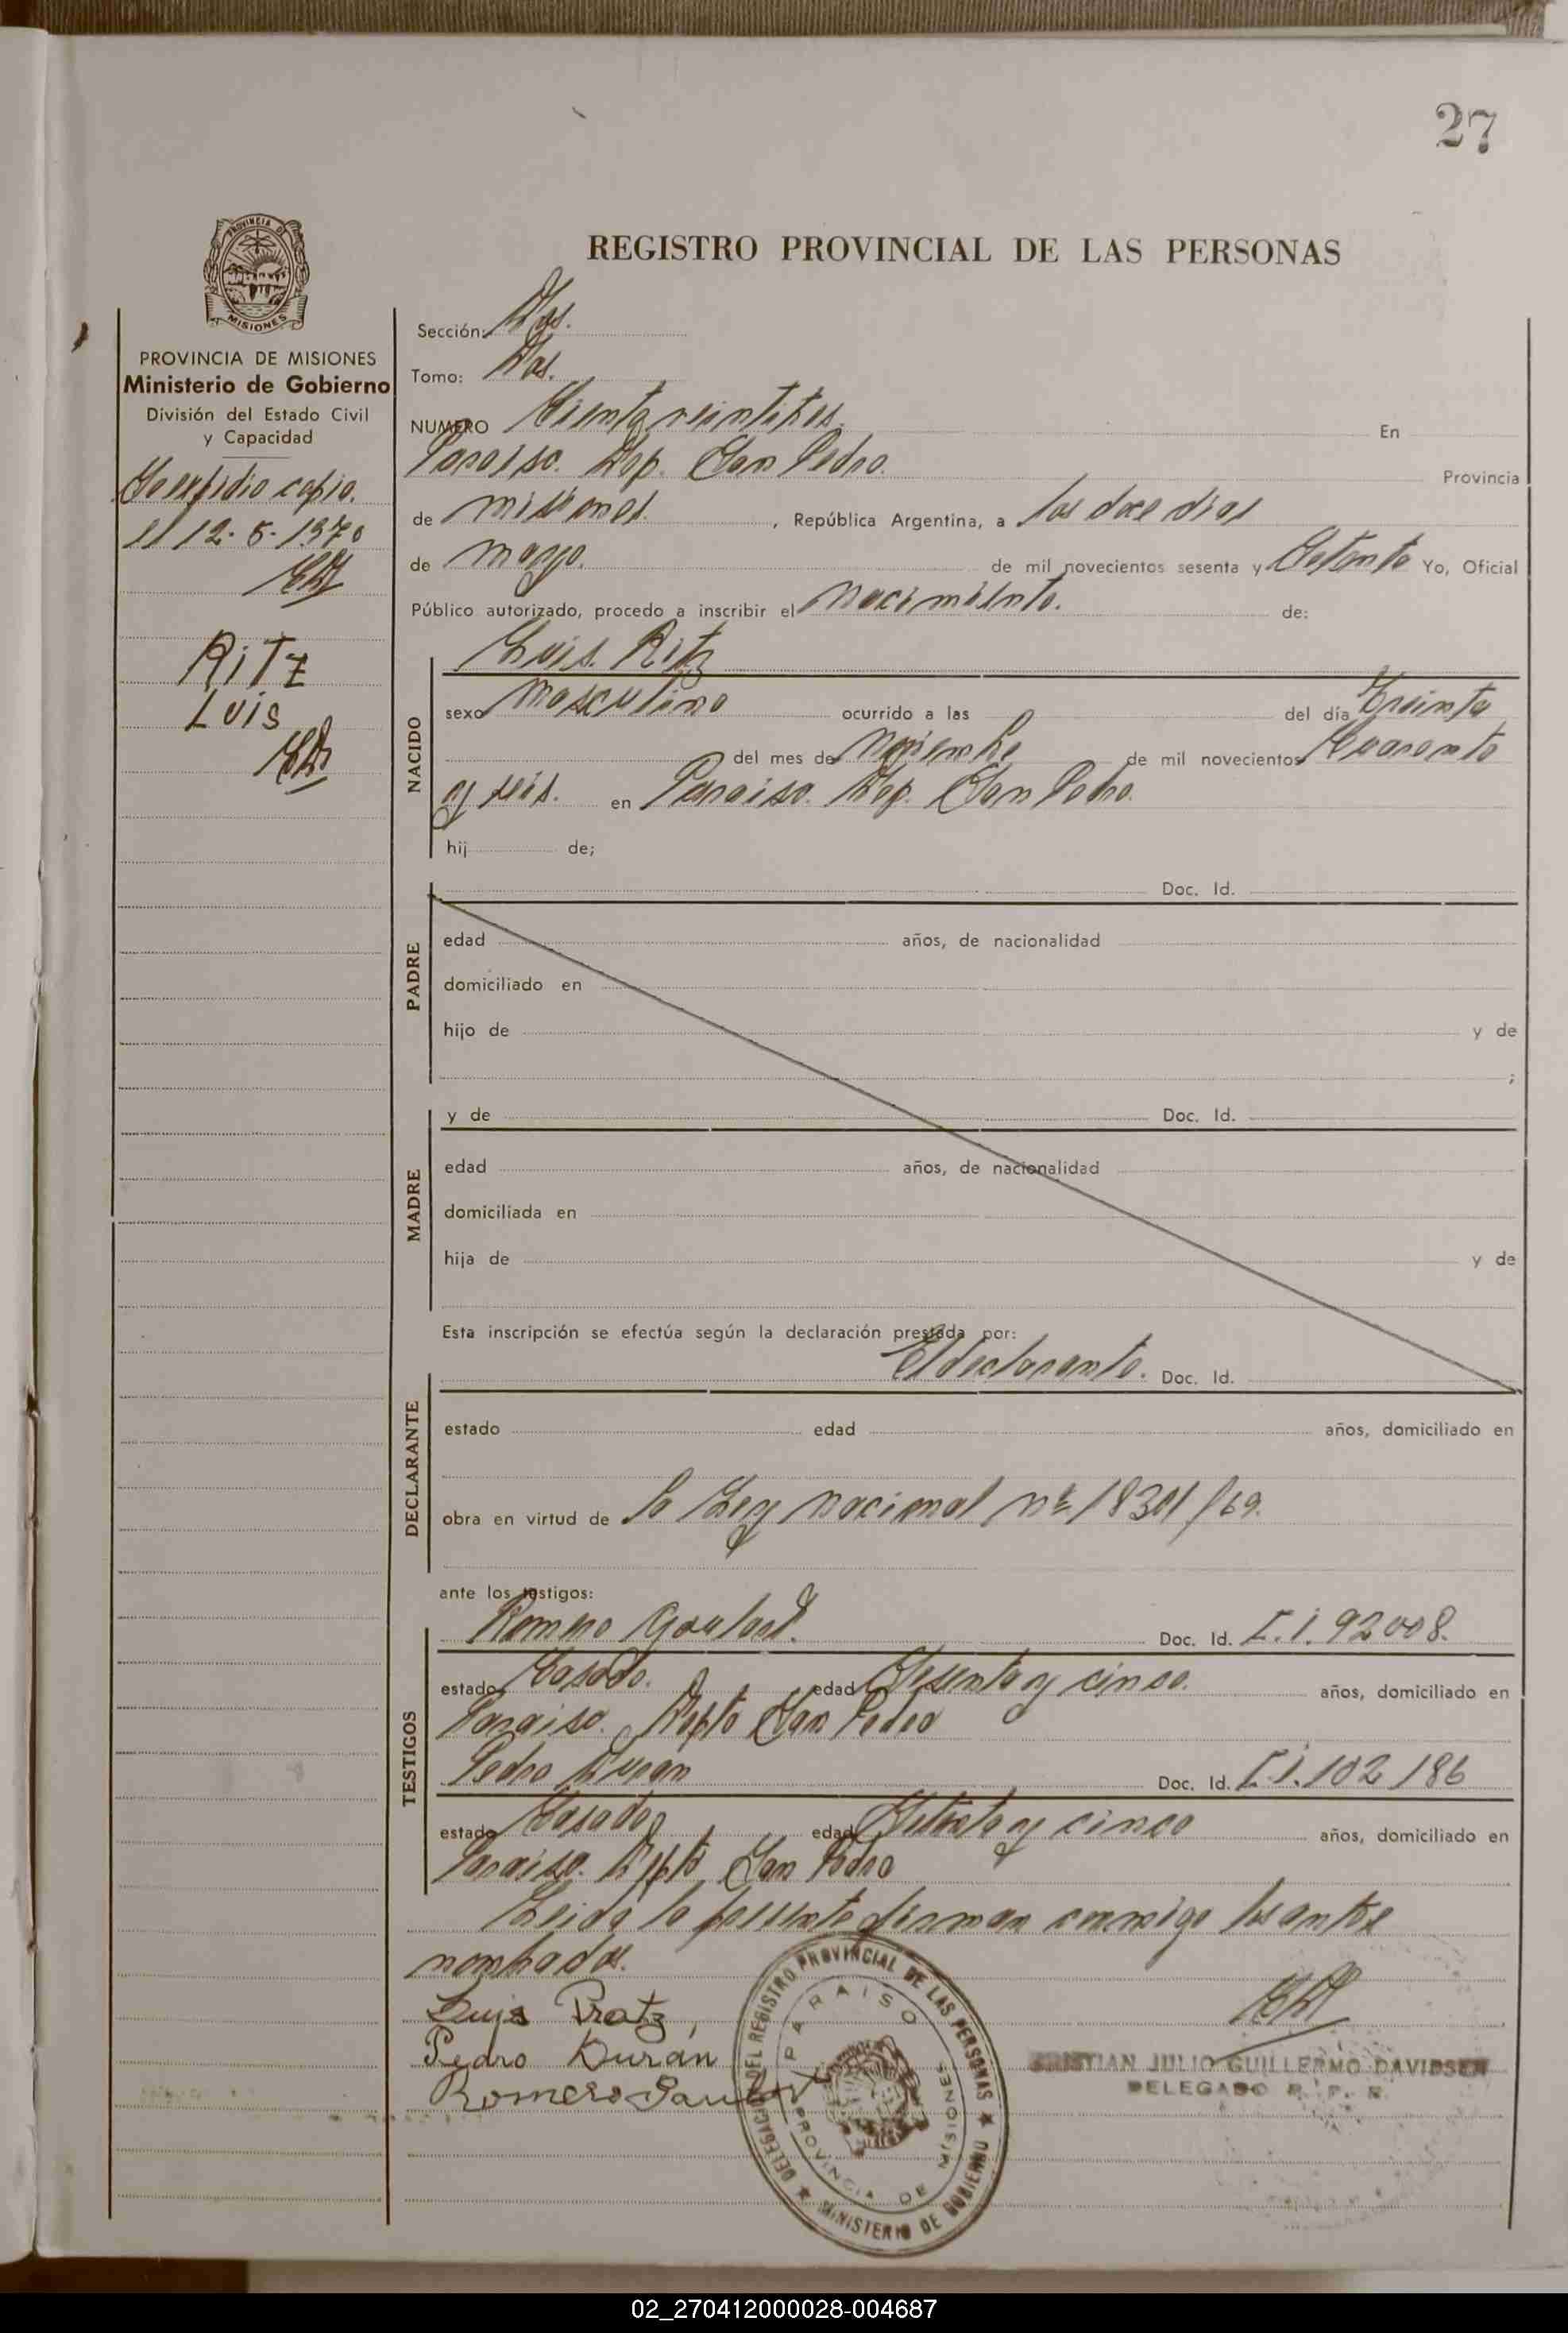 27
PROVINCIA DE
MISIONES
REGISTRO PROVINCIAL DE LAS PERSONAS
PROVINCIA DE MISIONES
Ministerio de Gobierno
División del Estado Civil
y Capacidad
Se expidio copia.
el 12-5-1970
RITZ
LUIS
Sección: Dos.
Tomo: Dos.
NUMERO Ciento veintitres. En
Paraiso. Dep. San Pedro. Provincia
de misiones. , República Argentina, a los doce dias
de mayo. de mil novecientos sesenta y Setenta Yo, Oficial
Público autorizado, procedo a inscribir el nacimiento. de:
NACIDO
Luis. Ritz
sexo masculino ocurrido a las del día Treinta
del mes de noviembre de mil novecientos Cuarenta
y seis. en Paraiso. Dep. San Pedro.
hij de;
PADRE
Doc. Id.
edad años, de nacionalidad
domiciliado en
hijo de y de
;
MADRE
y de Doc. Id.
edad años, de nacionalidad
domiciliada en
hija de y de
Esta inscripción se efectúa según la declaración prestada por:
DECLARANTE
El declarante. Doc. Id.
estado edad años, domiciliado en
obra en virtud de la Ley nacional nº 18301/69.
ante los testigos:
TESTIGOS
Romero Goulart. Doc. Id. C.I. 92008.
estado Casado. edad Sesenta y cinco. años, domiciliado en
Paraiso. Depto San Pedro
Pedro Duran Doc. Id. C.I. 102186
estado Casado edad y cinco años, domiciliado en
Paraiso. Depto San Pedro
Leida la presente firman conmigo los antes
nombrados.
Luis Pratz,
Pedro Durán
Romero
DELEGACION DEL REGISTRO PROVINCIAL DE LAS PERSONAS
MINISTERIO DE GOBIERNO
PARAISO
PROVINCIA DE MISIONES
KRISTIAN JULIO GUILLERMO DAVIDSEN
DELEGADO R. P. P.
02_270412000028-004687